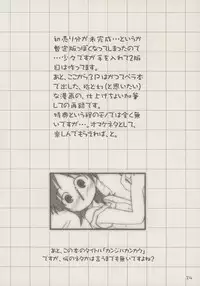 初売り分が未完成…というか
暫定版っぽくなってしまったので
…少々ですが手を入れて2版
目は作ってます。
あと、ここから3Pはかつてペラ本
で出した、拾と幻(と思いたい)
な漫画の、仕上げなよか加筆
しての再録です。
特典という程のモノでは全く無
いですが…。オマケネタとして、
楽しんでもらえれば、と。
あと、この本のタイトル「カンジバカンガウ」
ですが、仮のネタかは言うまでも無いですよね?